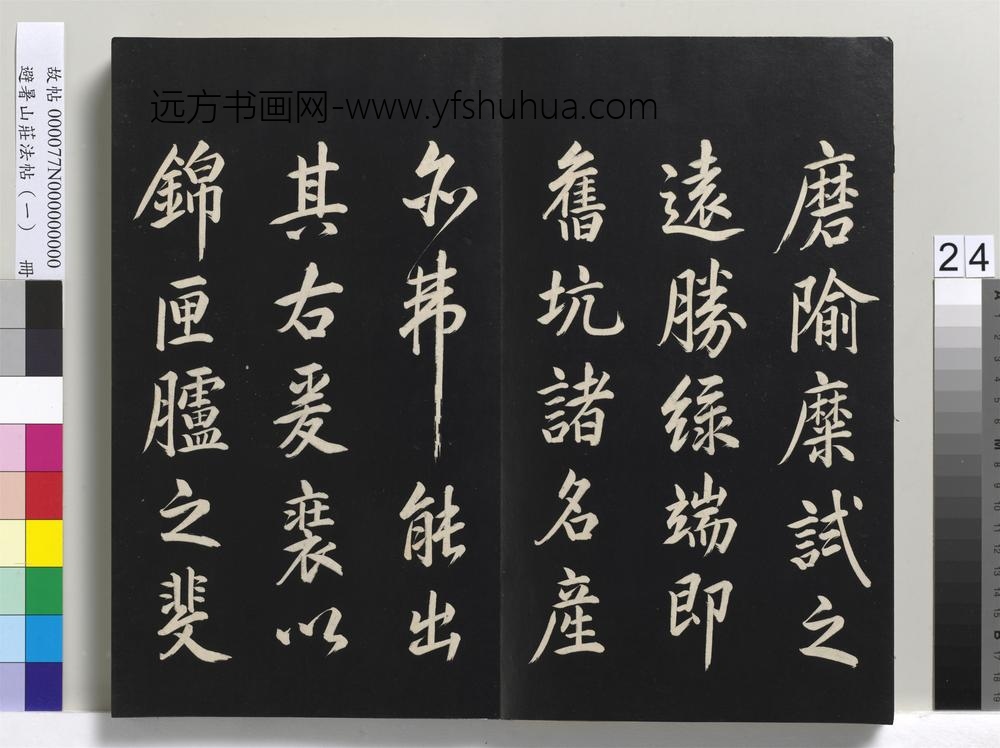 磨隃糜試之
遠勝綠端即
舊坑諸名産
亦弗能出
其右爰裝以
錦匣臚之斐
远方书画网-www.yfshuhua.com
故帖 000077N000000000
避暑山莊法帖（一） 冊
24